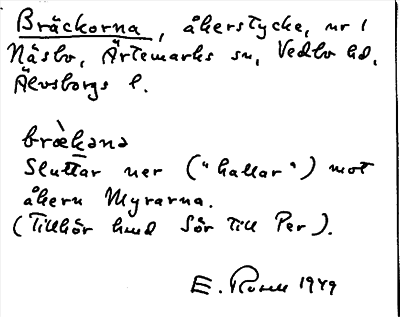 Bräckorna, åkerstycke, nr 1
Näsbo, Ärtemarks sn, Vedbo hd,
Älvsborgs l.
bræ̀kənə
Sluttar ner ("hallar") mot
åkern Myrarna.
(Tillhör hmd Sör till Per).
E. Rosell 1949